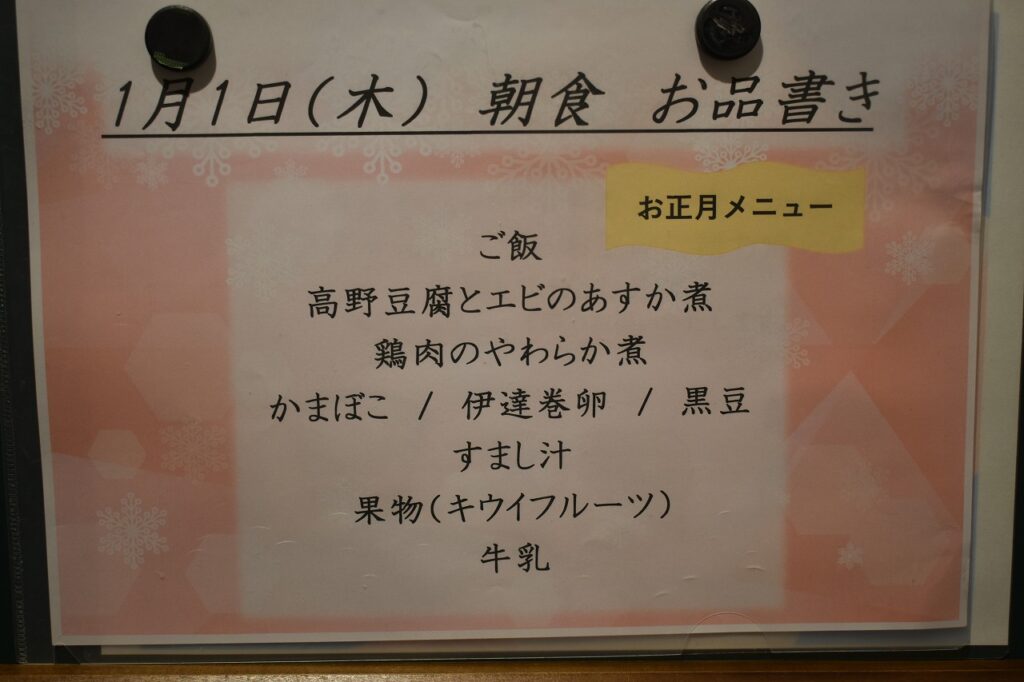 1月1日(木) 朝食 お品書き
お正月メニュー
ご飯
高野豆腐とエビのあすか煮
鶏肉のやわらか煮
かまぼこ / 伊達巻卵 / 黒豆
すまし汁
果物(キウイフルーツ)
牛乳